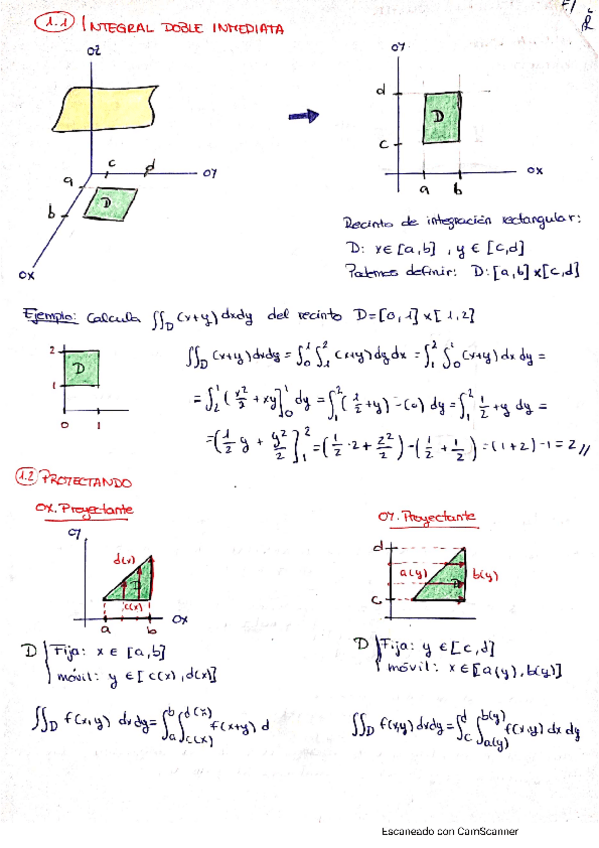 1.1 INTEGRAL DOBLE INMEDIATA
OZ
c d
a OY
b D
OX
OY
d
D
c
a b OX
Recinto de integración rectangular:
D: x ∈ [a,b] , y ∈ [c,d]
Podemos definir: D: [a,b]x[c,d]
Ejemplo: Calcula ∬_D (x+y) dxdy del recinto D=[0,1]x[1,2]
2
D
1
0 1
∬_D (x+y) dxdy = ∫_0^1 ∫_1^2 (x+y) dy dx = ∫_1^2 ∫_0^1 (x+y) dx dy =
= ∫_2^1 (x²/2 + xy]_0^1 dy = ∫_1^2 (1/2 + y) - (0) dy = ∫_1^2 1/2 + y dy =
= (1/2 y + y²/2]_1^2 = (1/2 · 2 + 2²/2) - (1/2 + 1/2) = (1+2) - 1 = 2 //
1.2 PROYECTANDO
OX. Proyectante
OY
d(x)
D
c(x)
a b OX
D Fija: x ∈ [a,b]
móvil: y ∈ [c(x), d(x)]
∬_D f(x,y) dxdy = ∫_a^b ∫_c(x)^d(x) f(x+y) d
OY. Proyectante
d
a(y) D b(y)
c
D Fija: y ∈ [c,d]
móvil: x ∈ [a(y), b(y)]
∬_D f(x,y) dxdy = ∫_c^d ∫_a(y)^b(y) f(x,y) dx dy
Escaneado con CamScanner